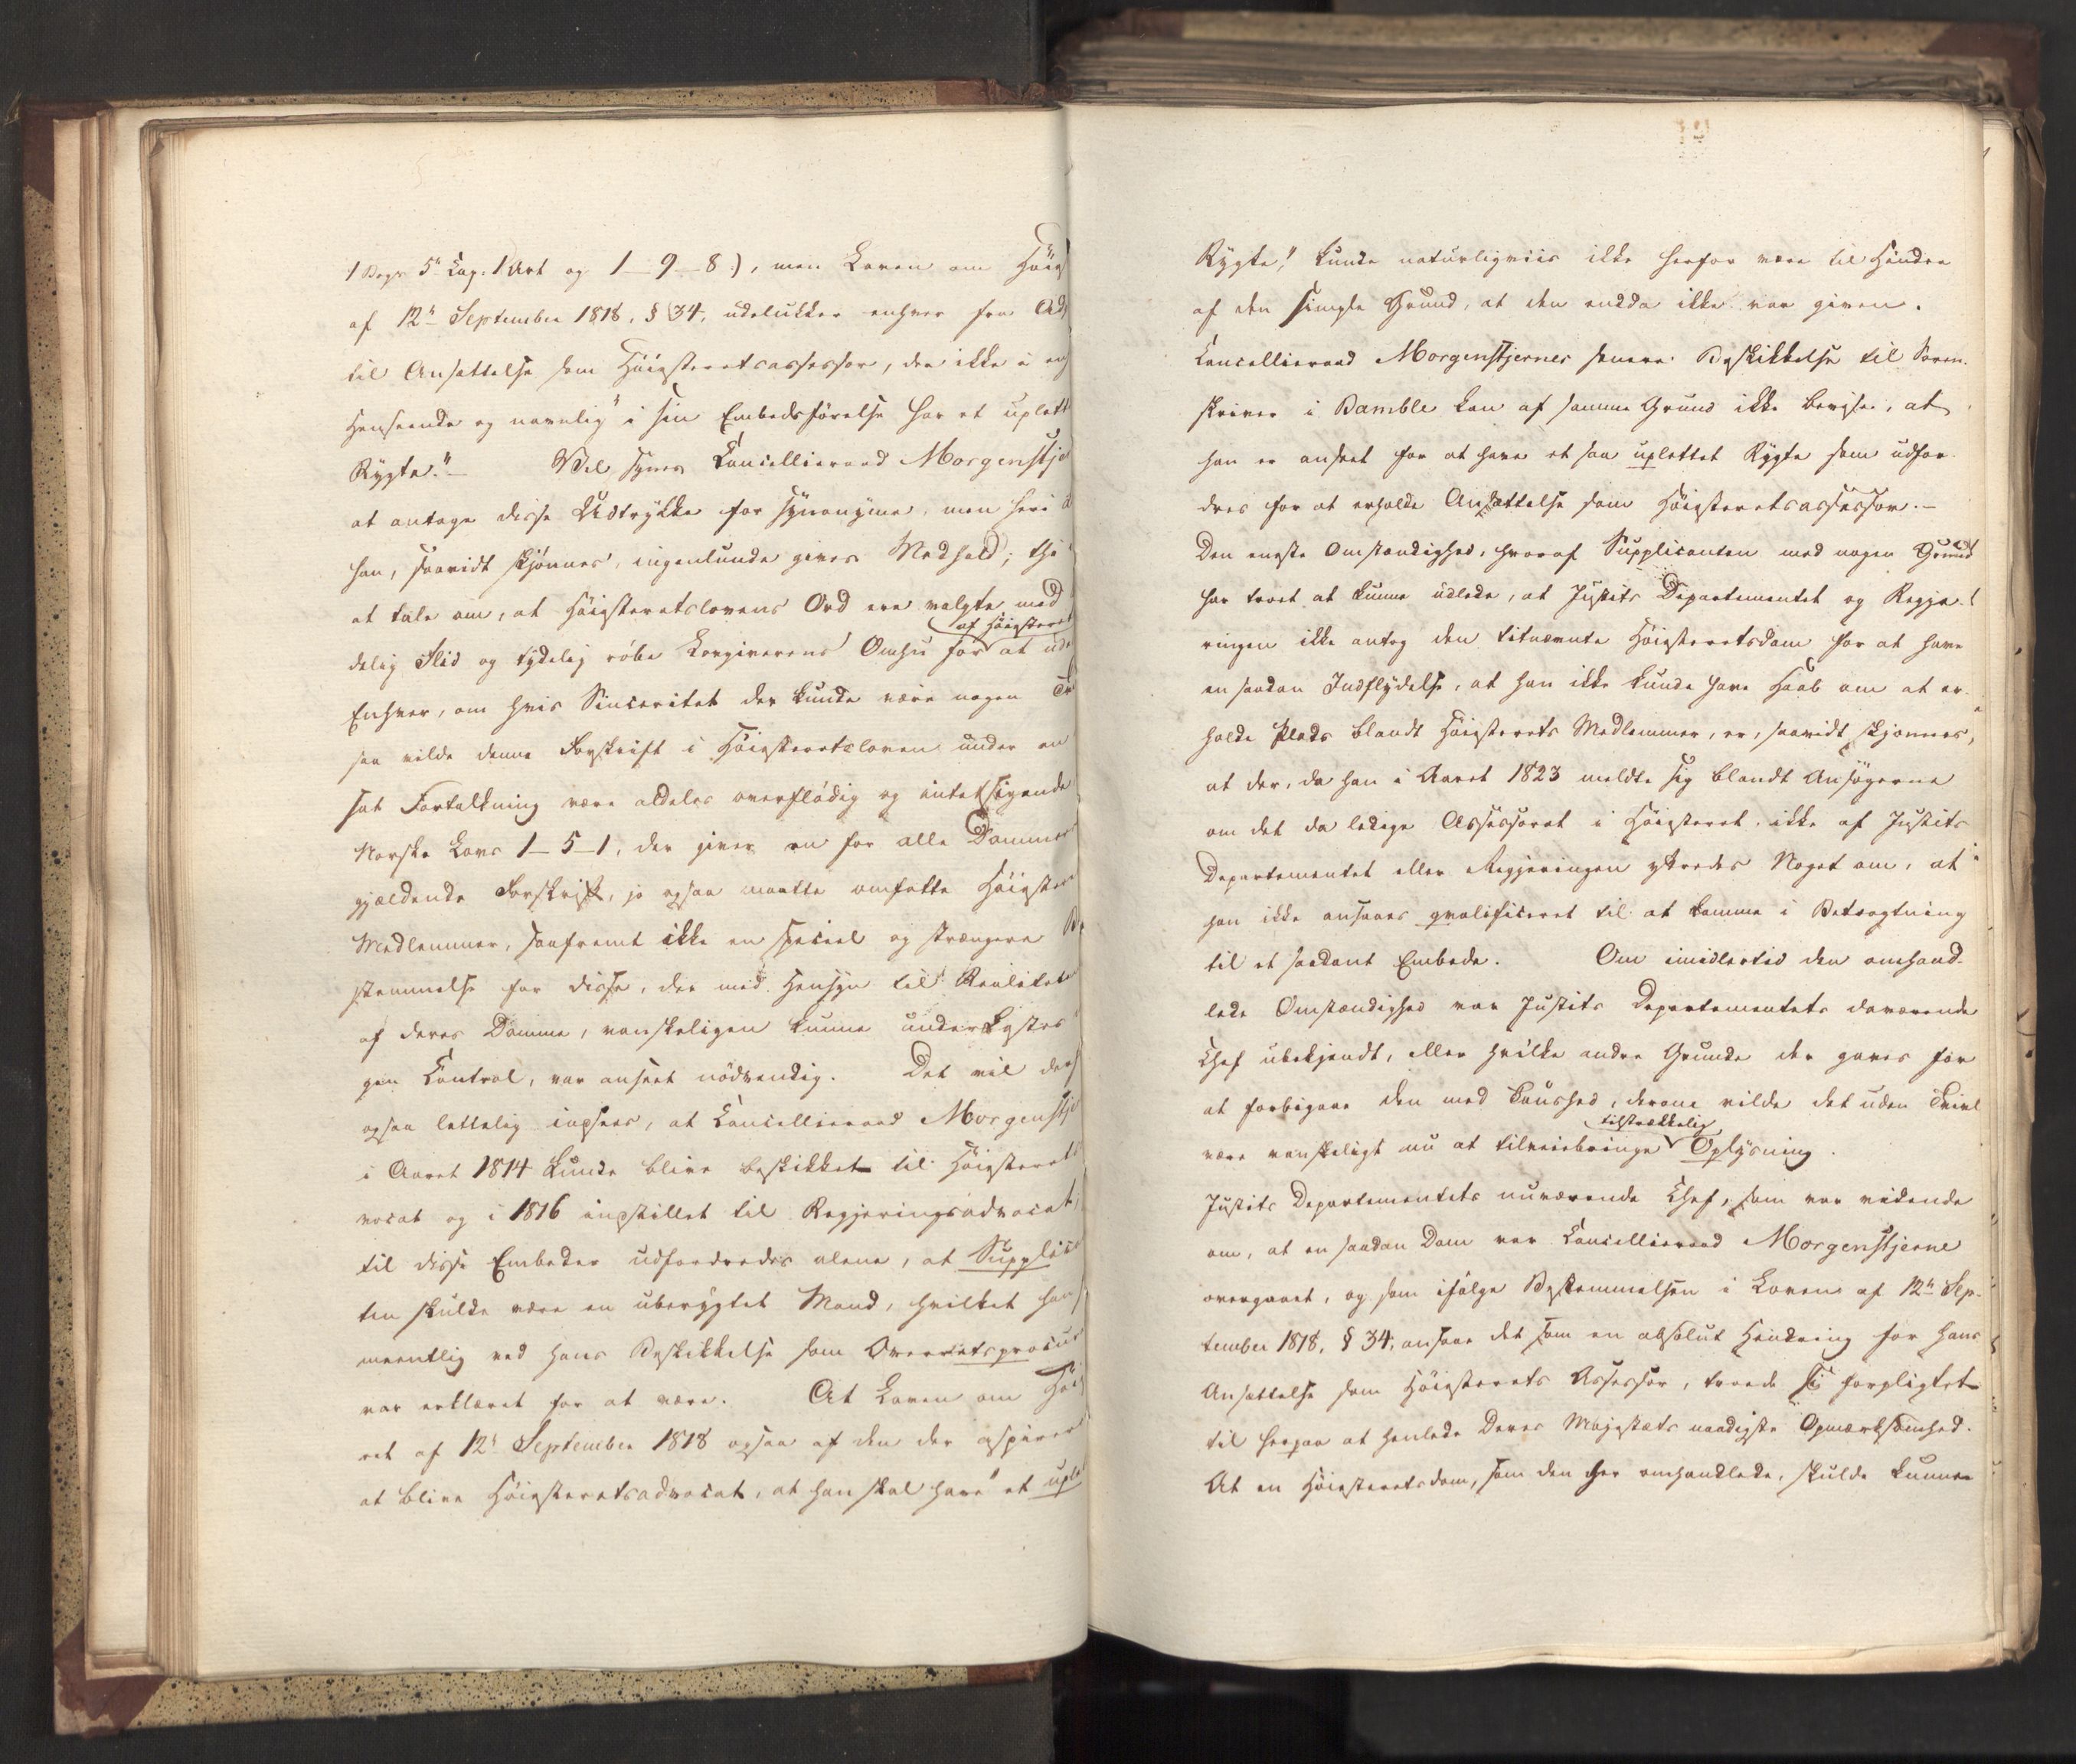 1 Bogs 5te Cap. 1 Art og 1–9–8), men Loven om Höies
af 12te September 1818, § 34, udelukker enhver fra Ad
til Ansættelse som Höiesteretsassessor, der ikke i en
Henseende og navnlig i sin Embedsförelse har et uplett
Rygte." – Vel synes Cancellieraad Morgenstje
at antage disse Udtrykke for synonyme, men heri
han, saavidt skjönnes, ingenlunde gives Medhold; thi
at tale om, at Höiesteretslovens Ord ere valgte med
af Höiesteret
delig Flid og tydelig röbe Lovgiverens Omhu for at ude
Enhver, om hvis Sinceritet der kunde være nogen Tv
saa vilde denne Forskrift i Höiesteretsloven under en
sat Fortolkning være aldeles overflödig og intetsigende
Norske Lovs 1–5–1, der giver en for alle Dommer
gjældende Forskrift, jo ogsaa maatte omfatte Höiester
Medlemmer, saafremt ikke en speciel og strængere Be
stemmelse for disse, der med Hensyn til Realitet
af deres Domme, vanskeligen kunne underkastes
gen Control, var anseet nödvendig. Det vil der
ogsaa lettelig indsees, at Cancellieraad Morgenstje
i Aaret 1814 kunde blive beskikket til Höiesterets
vocat og i 1816 indstillet til Regjeringsadvocat,
til disse Embeder udfordredes alene, at Supplica
ten skulde være en uberygtet Mand, hvilket han
meentlig ved hans Beskikkelse som Overretsprocur
var erklæret for at være. At Loven om Höie
ret af 12te September 1818 ogsaa af den der aspirer
at blive Höiesteretsadvocat, at han skal have "et uple
Rygte", kunde naturligviis ikke herfor være til Hinder
af den simple Grund, at den endda ikke var given.
Cancellieraad Morgenstjernes senere Beskikkelse til Soren-
skriver i Bamble kan af samme Grund ikke bevise, at
han er anseet for at have et saa uplettet Rygte som udfor-
dres for at erholde Ansættelse som Höiesteretsassessor. –
Den eneste Omstændighed, hvoraf Supplicanten med nogen Grund
har troet at kunne udlede, at Justits Departementet og Regje-
ringen ikke antog den bemeldte Höiesteretsdom for at have
en saadan Indflydelse, at han ikke kunde have Haab om at er-
holde Plads blandt Höiesterets Medlemmer, er, saavidt skjönnes,
at der, da han i Aaret 1823 meldte sig blandt Ansögerne
om det da ledige Assessorat i Höiesteret, ikke af Justits
Departementet eller Regjeringen ytredes Noget om, at
han ikke ansaaes qvalificeret til at komme i Betragtning
til et saadant Embede. Om imidlertid den omhand-
lede Omstændighed var Justits Departementets daværende
Chef ubekjendt, eller hvilke andre Grunde der gaves for
at forbigaae den med Taushed, derom vilde det uden Tvivl
tilstrækkelig
være vanskeligt nu at tilveiebringe Oplysning.
Justits Departementets nuværende Chef, som var vidende
om, at en saadan Dom var Cancellieraad Morgenstjerne
overgaaet, og som ifölge Bestemmelsen i Loven af 12te Sep-
tember 1818, § 34, ansaae det som en absolut Hindring for hans
Ansættelse som Höiesterets Assessor, troede sig forpligtet
til herpaa at henlede Deres Majestæts naadigste Opmærksomhed.
At en Höiesteretsdom, som den her omhandlede, skulde kunne